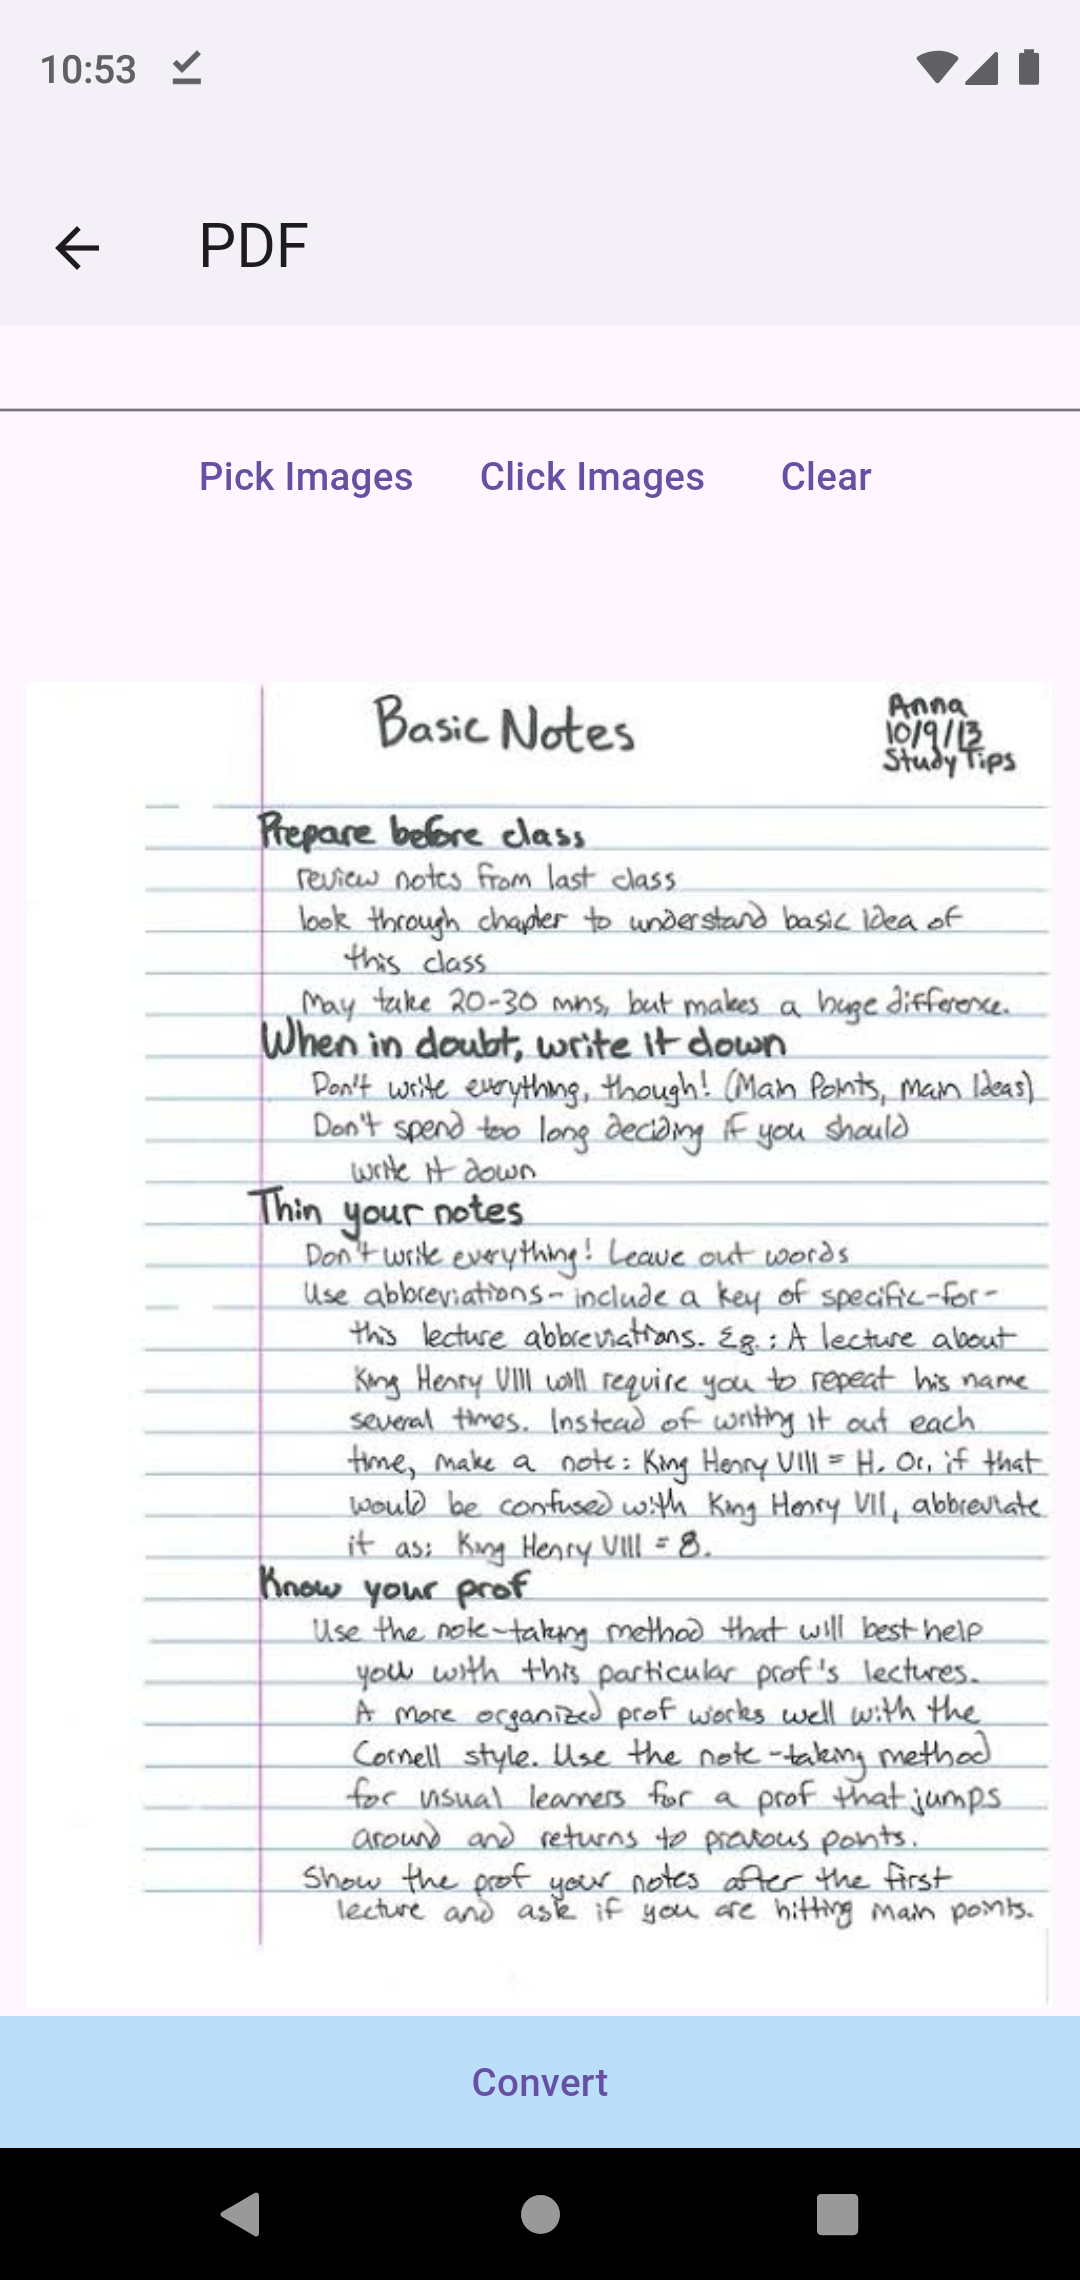 10:53
PDF
Pick Images Click Images Clear
Basic Notes
Anna
10/9/13
Study Tips
Prepare before class
review notes from last class
look through chapter to understand basic idea of
this class
May take 20-30 mns, but makes a huge difference.
When in doubt, write it down
Don't write everything, though! (Main Points, Main Ideas)
Don't spend too long deciding if you should
write it down
Thin your notes
Don't write everything! Leave out words
Use abbreviations- include a key of specific-for-
this lecture abbreviations. Eg.: A lecture about
King Henry VIII will require you to repeat his name
several times. Instead of writing it out each
time, make a note: King Henry VIII = H. Or, if that
would be confused with King Henry VII, abbreviate
it as: King Henry VIII = 8.
Know your prof
Use the note-taking method that will best help
you with this particular prof's lectures.
A more organized prof works well with the
Cornell style. Use the note-taking method
for visual learners for a prof that jumps
around and returns to points.
Show the prof your notes after the first
lecture and ask if you are hitting main points.
Convert